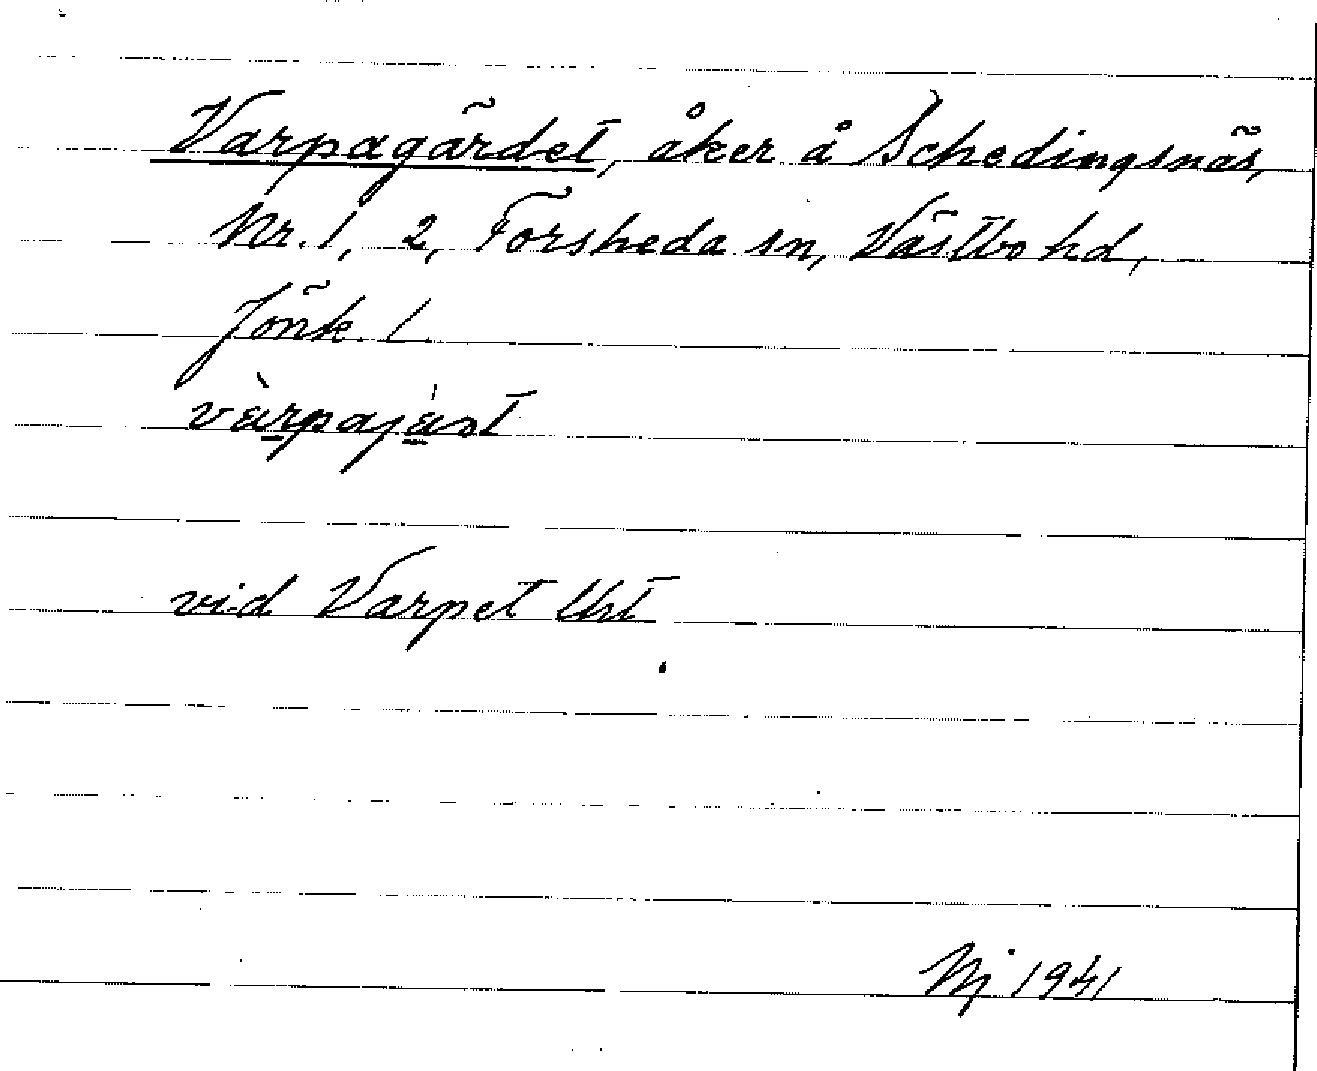 Varpagärdet, åker å Schedingsnäs,
Nr. 1, 2, Forsheda sn, Västbo hd,
Jönk. l.
vid Varpet
1941